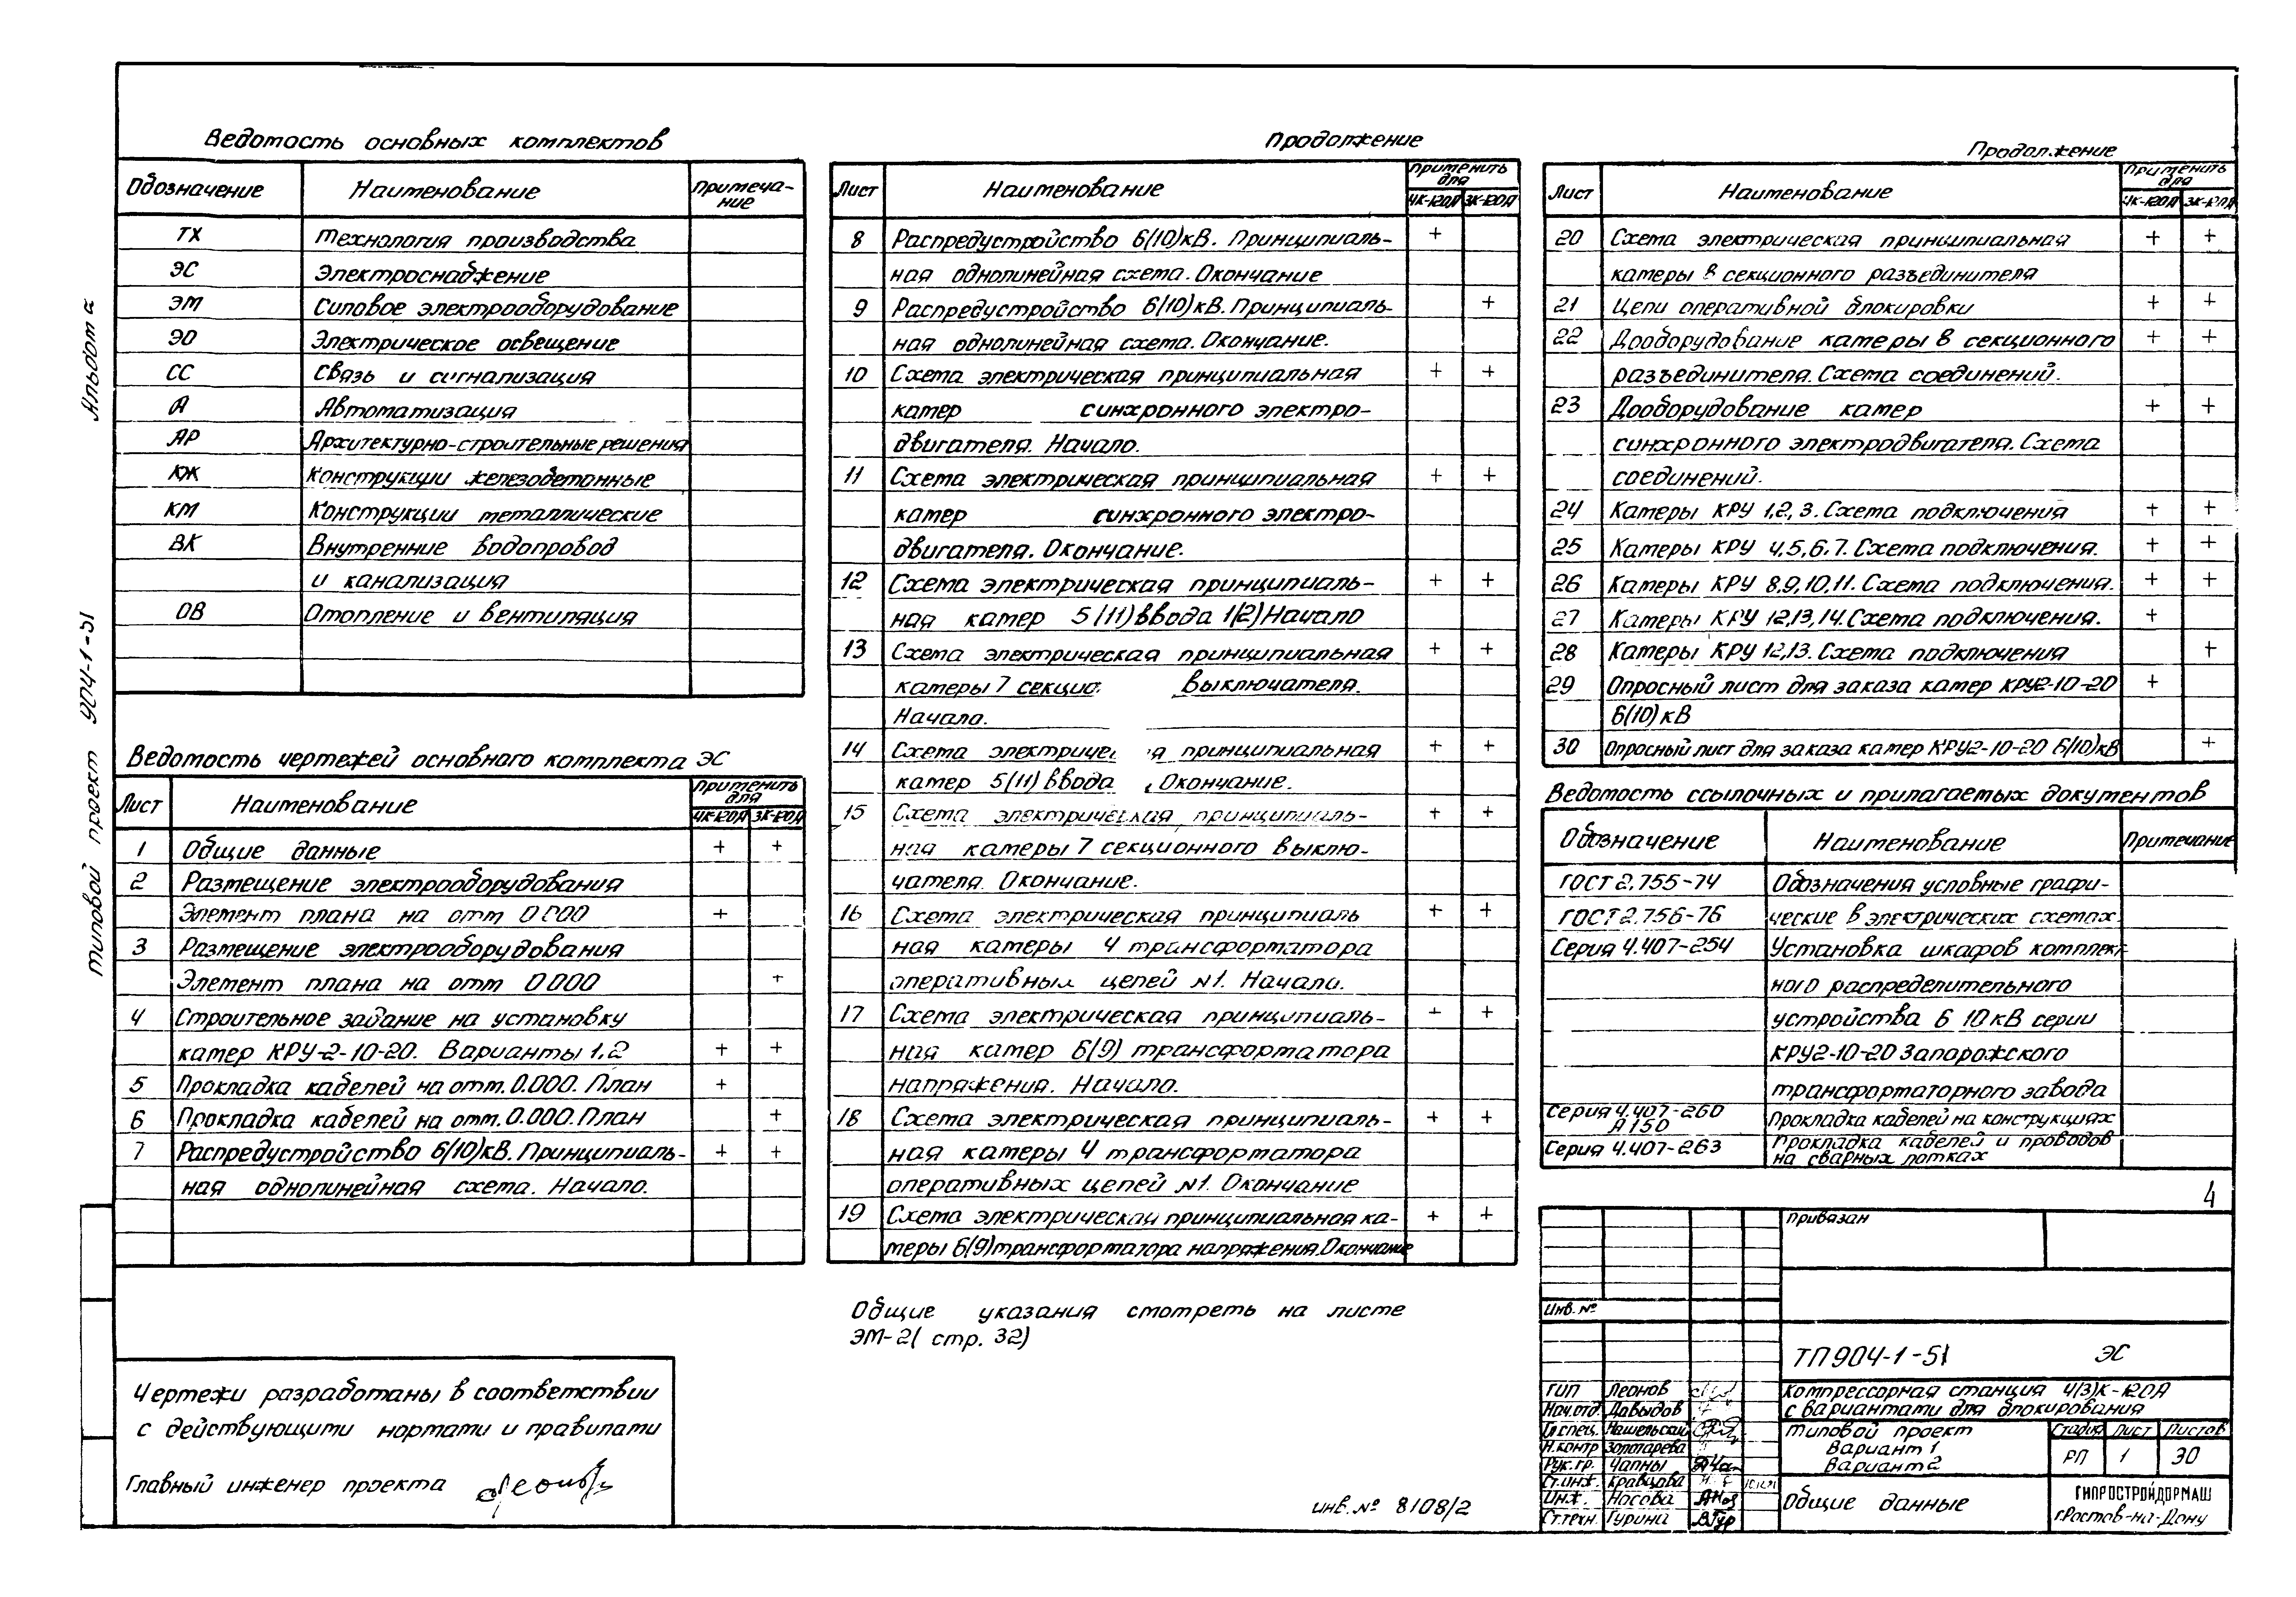 Альбом 2
Типовой проект 904-1-51
Ведомость основных комплектов
Обозначение Наименование Примеча-
ние
ТХ Технология производства
ЭС Электроснабжение
ЭМ Силовое электрооборудование
ЭО Электрическое освещение
СС Связь и сигнализация
А Автоматизация
АР Архитектурно-строительные решения
КЖ Конструкции железобетонные
КМ Конструкции металлические
ВК Внутренние водопровод
и канализация
ОВ Отопление и вентиляция
Ведомость чертежей основного комплекта ЭС
Лист Наименование Применить
для
4К-120А 3К-120А
1 Общие данные + +
2 Размещение электрооборудования
Элемент плана на отм 0.000 +
3 Размещение электрооборудования
Элемент плана на отм 0.000 +
4 Строительное задание на установку
камер КРУ-2-10-20. Варианты 1,2 + +
5 Прокладка кабелей на отм. 0.000. План +
6 Прокладка кабелей на отм. 0.000. План +
7 Распредустройство 6(10)кВ. Принципиаль- + +
ная однолинейная схема. Начало.
Чертежи разработаны в соответствии
с действующими нормами и правилами
Главный инженер проекта
Продолжение
Лист Наименование Применить
для
4К-120А 3К-120А
8 Распредустройство 6(10)кВ. Принципиаль- +
ная однолинейная схема. Окончание
9 Распредустройство 6(10)кВ. Принципиаль- +
ная однолинейная схема. Окончание.
10 Схема электрическая принципиальная + +
камер синхронного электро-
двигателя. Начало.
11 Схема электрическая принципиальная + +
камер синхронного электро-
двигателя. Окончание.
12 Схема электрическая принципиаль- + +
ная камер 5(11) ввода 1(2) Начало
13 Схема электрическая принципиальная + +
камеры 7 секцио. выключателя.
Начало.
14 Схема электрическая принципиальная + +
камер 5(11) ввода . Окончание.
15 Схема электрическая принципиаль- + +
ная камеры 7 секционного выклю-
чателя. Окончание.
16 Схема электрическая принципиаль + +
ная камеры 4 трансформатора
оперативных цепей №1. Начало.
17 Схема электрическая принципиаль- + +
ная камер 6(9) трансформатора
напряжения. Начало.
18 Схема электрическая принципиаль- + +
ная камеры 4 трансформатора
оперативных цепей №1. Окончание
19 Схема электрическая принципиальная ка- + +
меры 6(9) трансформатора напряжения. Окончание
Общие указания смотреть на листе
ЭМ-2( стр. 32)
инв. № 8108/2
Продолжение
Лист Наименование Применить
для
4К-120А 3К-120А
20 Схема электрическая принципиальная + +
камеры 8 секционного разъединителя
21 Цепи оперативной блокировки + +
22 Дооборудование камеры 8 секционного + +
разъединителя. Схема соединений.
23 Дооборудование камер + +
синхронного электродвигателя. Схема
соединений.
24 Камеры КРУ 1,2,3. Схема подключения + +
25 Камеры КРУ 4,5,6,7. Схема подключения. + +
26 Камеры КРУ 8,9,10,11. Схема подключения. + +
27 Камеры КРУ 12,13,14. Схема подключения. +
28 Камеры КРУ 12,13. Схема подключения +
29 Опросный лист для заказа камер КРУ2-10-20 +
6(10)кВ
30 Опросный лист для заказа камер КРУ2-10-20 6(10)кВ +
Ведомость ссылочных и прилагаемых документов
Обозначение Наименование Примечание
ГОСТ 2.755-74 Обозначения условные графи-
ГОСТ 2.756-76 ческие в электрических схемах.
Серия 4.407-254 Установка шкафов комплект-
ного распределительного
устройства 6 10кВ серии
КРУ2-10-20 Запорожского
трансформаторного завода
Серия 4.407-260 Прокладка кабелей на конструкциях
А150
Серия 4.407-263 Прокладка кабелей и проводов
на сварных лотках
4
Привязан
Инв. №
ТП904-1-51 ЭС
ГИП Леонов
Нач.отд. Давыдов
Гл.спец.
Н.контр Золотарева
Рук.гр. Чапны
Ст.инж. Кравцова
Инж. Носова
Ст.техн. Гурина
Компрессорная станция 4(3)К-120А
с вариантами для блокирования
Типовой проект
Вариант 1
Вариант 2
Стадия Лист Листов
РП 1 30
Общие данные
ГИПРОСТРОЙДОРМАШ
г.Ростов-на-Дону